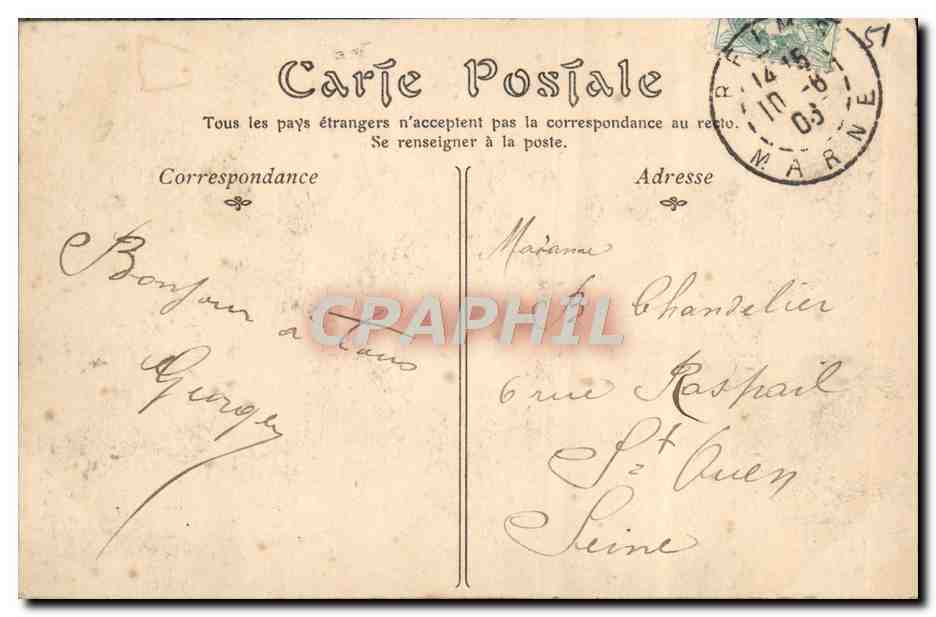 Carte Postale
Tous les pays étrangers n'acceptent pas la correspondance au recto.
Se renseigner à la poste.
Correspondance
Adresse
REIMS
14 15
10 -6
MARNE
51
Bonjour a Tous
Georges
Madame
Chandelier
6 rue Raspail
St Ouen
Seine
CPAPHIL